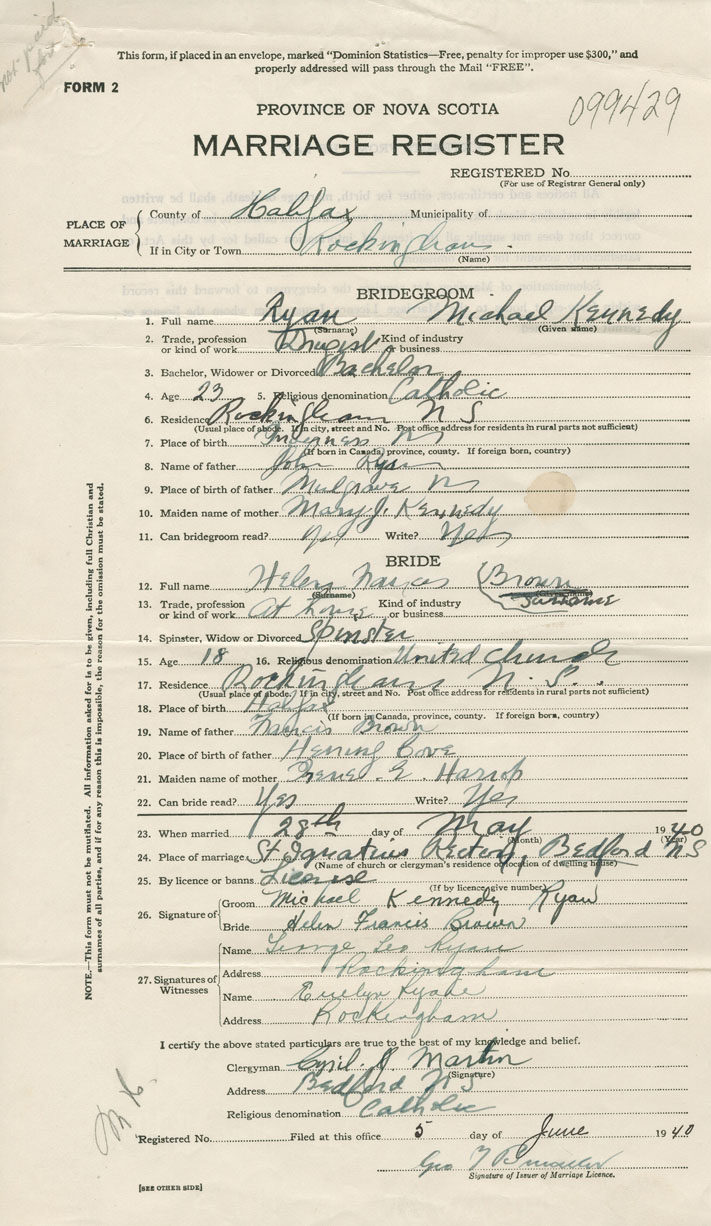 not paid for
This form, if placed in an envelope, marked "Dominion Statistics—Free, penalty for improper use $300," and
properly addressed will pass through the Mail "FREE".
FORM 2
099429
PROVINCE OF NOVA SCOTIA
MARRIAGE REGISTER
REGISTERED No.
(For use of Registrar General only)
PLACE OF MARRIAGE
County of Halifax Municipality of
If in City or Town Rockingham.
(Name)
BRIDEGROOM
1. Full name Ryan Michael Kennedy
(Surname) (Given name)
2. Trade, profession or kind of work Druggist Kind of industry or business
3. Bachelor, Widower or Divorced Bachelor
4. Age 23 5. Religious denomination Catholic
6. Residence Rockingham N S
(Usual place of abode. If in city, street and No. Post office address for residents in rural parts not sufficient)
7. Place of birth Inverness NS
(If born in Canada, province, county. If foreign born, country)
8. Name of father John Ryan
9. Place of birth of father Mulgrave NS
10. Maiden name of mother Mary J. Kennedy
11. Can bridegroom read? Yes Write? Yes
BRIDE
12. Full name Helen Frances (Brown
(Surname) (Given name) Surname
13. Trade, profession or kind of work At home Kind of industry or business
14. Spinster, Widow or Divorced Spinster
15. Age 18 16. Religious denomination United Church
17. Residence Rockingham N. S.
(Usual place of abode. If in city, street and No. Post office address for residents in rural parts not sufficient)
18. Place of birth Halifax
(If born in Canada, province, county. If foreign born, country)
19. Name of father Francis Brown
20. Place of birth of father Herring Cove
21. Maiden name of mother Irene E. Harrop
22. Can bride read? Yes Write? Yes
23. When married 28th day of May 1940
(Month) (Year)
24. Place of marriage St Ignatius Rectory, Bedford NS
(Name of church or clergyman's residence or location of dwelling house)
25. By licence or banns License
(If by licence, give number)
26. Signature of
Groom Michael Kennedy Ryan
Bride Helen Francis Brown
27. Signatures of Witnesses
Name George Leo Ryan
Address Rockingham
Name Evelyn
Address Rockingham
I certify the above stated particulars are true to the best of my knowledge and belief.
Clergyman Cyril J. Martin
(Signature)
Address Bedford NS
Religious denomination Catholic
Registered No. Filed at this office 5 day of June 1940
Geo
Signature of Issuer of Marriage Licence.
[SEE OTHER SIDE]
NOTE.—This form must not be mutilated. All information asked for is to be given, including full Christian and
surnames of all parties, and if for any reason this is impossible, the reason for the omission must be stated.